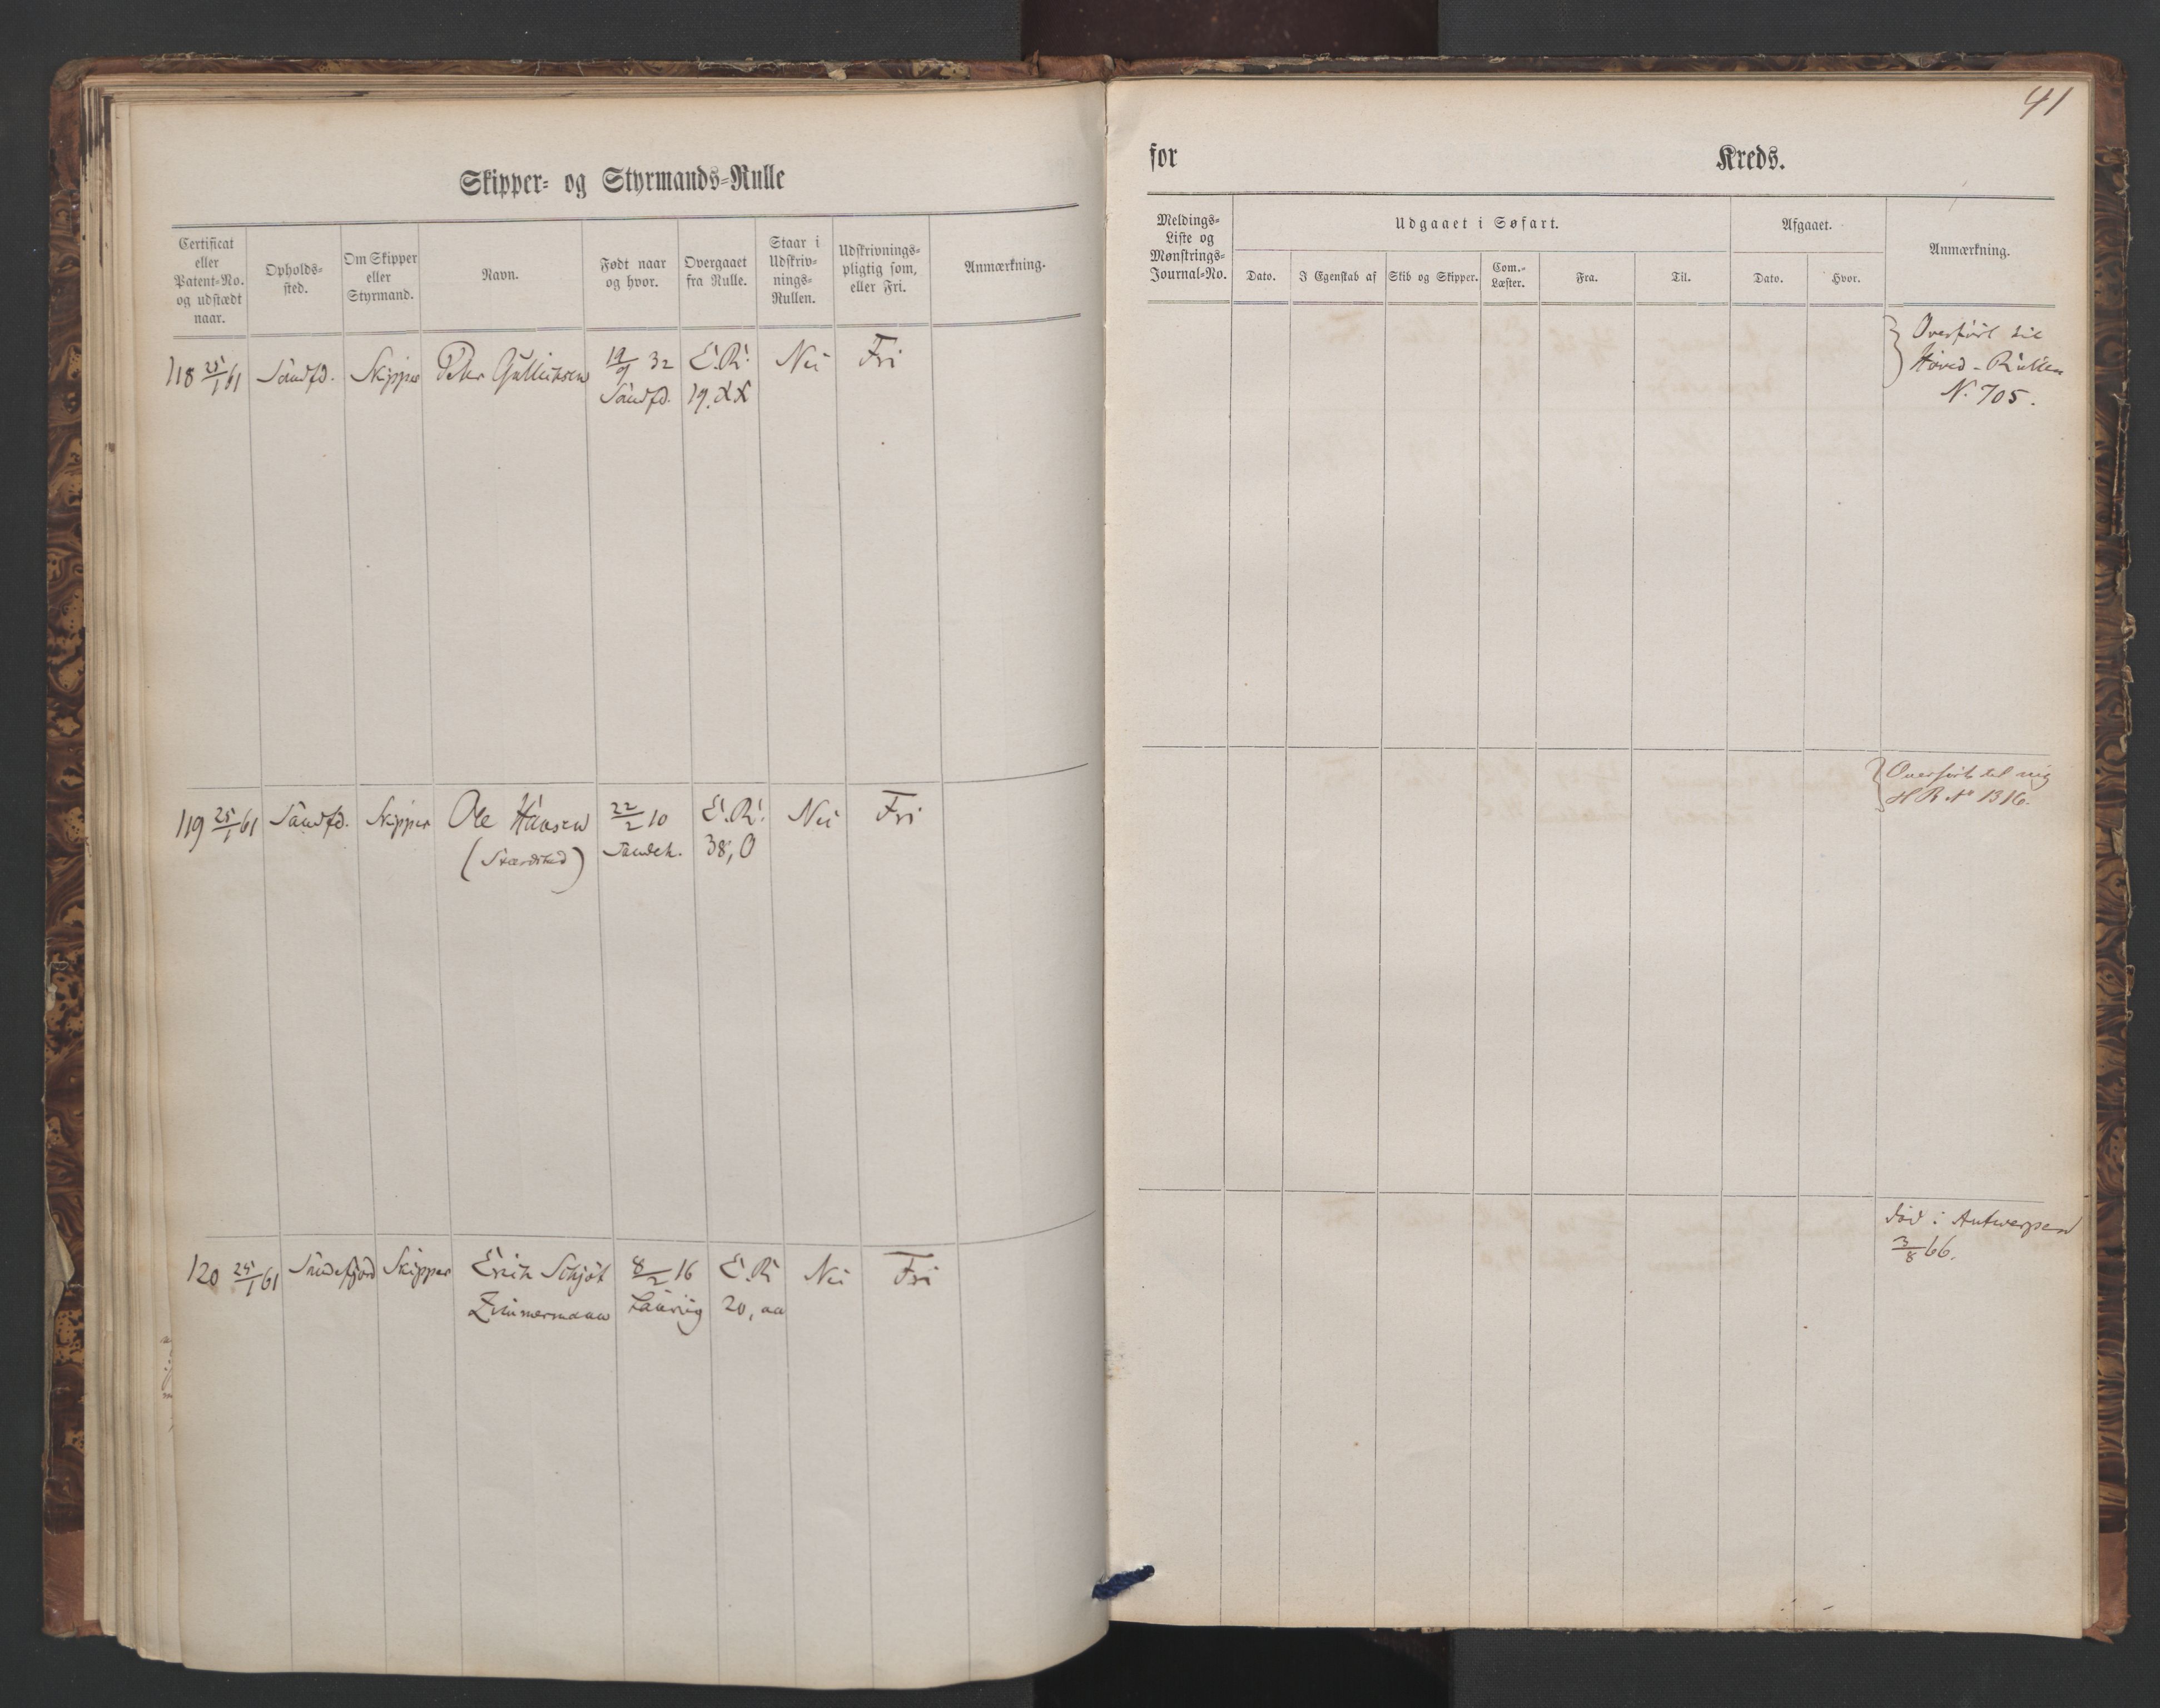 41
Skipper- og Styrmands-Rulle
for Kreds.
Certificat eller Patent-No. og udstædt naar.
Opholds-sted.
Om Skipper eller Styrmand.
Navn.
Født naar og hvor.
Overgaaet fra Rulle.
Staar i Udskriv-nings-Rullen.
Udskrivnings-pligtig som, eller Fri.
Anmærkning.
Meldings-Liste og Mønstrings-Journal-No.
Udgaaet i Søfart.
Dato.
I Egenskab af
Skib og Skipper.
Com.-Læster.
Fra.
Til.
Afgaaet.
Dato.
Hvor.
Anmærkning.
118 25/1 61 Sandfd. Skipper Peter Gulliksen 19/9 32 E.R. Nei Fri
Sandfd. 19.XX
Overført til
Hoved-Rullen
N. 705.
119 25/1 61 Sandfd. Skipper Ole Hansen 22/2 10 E.R. Nei Fri
Sandeh. 38, O
Overført til ny
H R No 1316.
120 25/1 61 Sandefjord Skipper Erik Schjøt 8/2 16 E.R. Nei Fri
Zimmermann Laurvig 20, aa
død i Antwerpen
3/8 66.